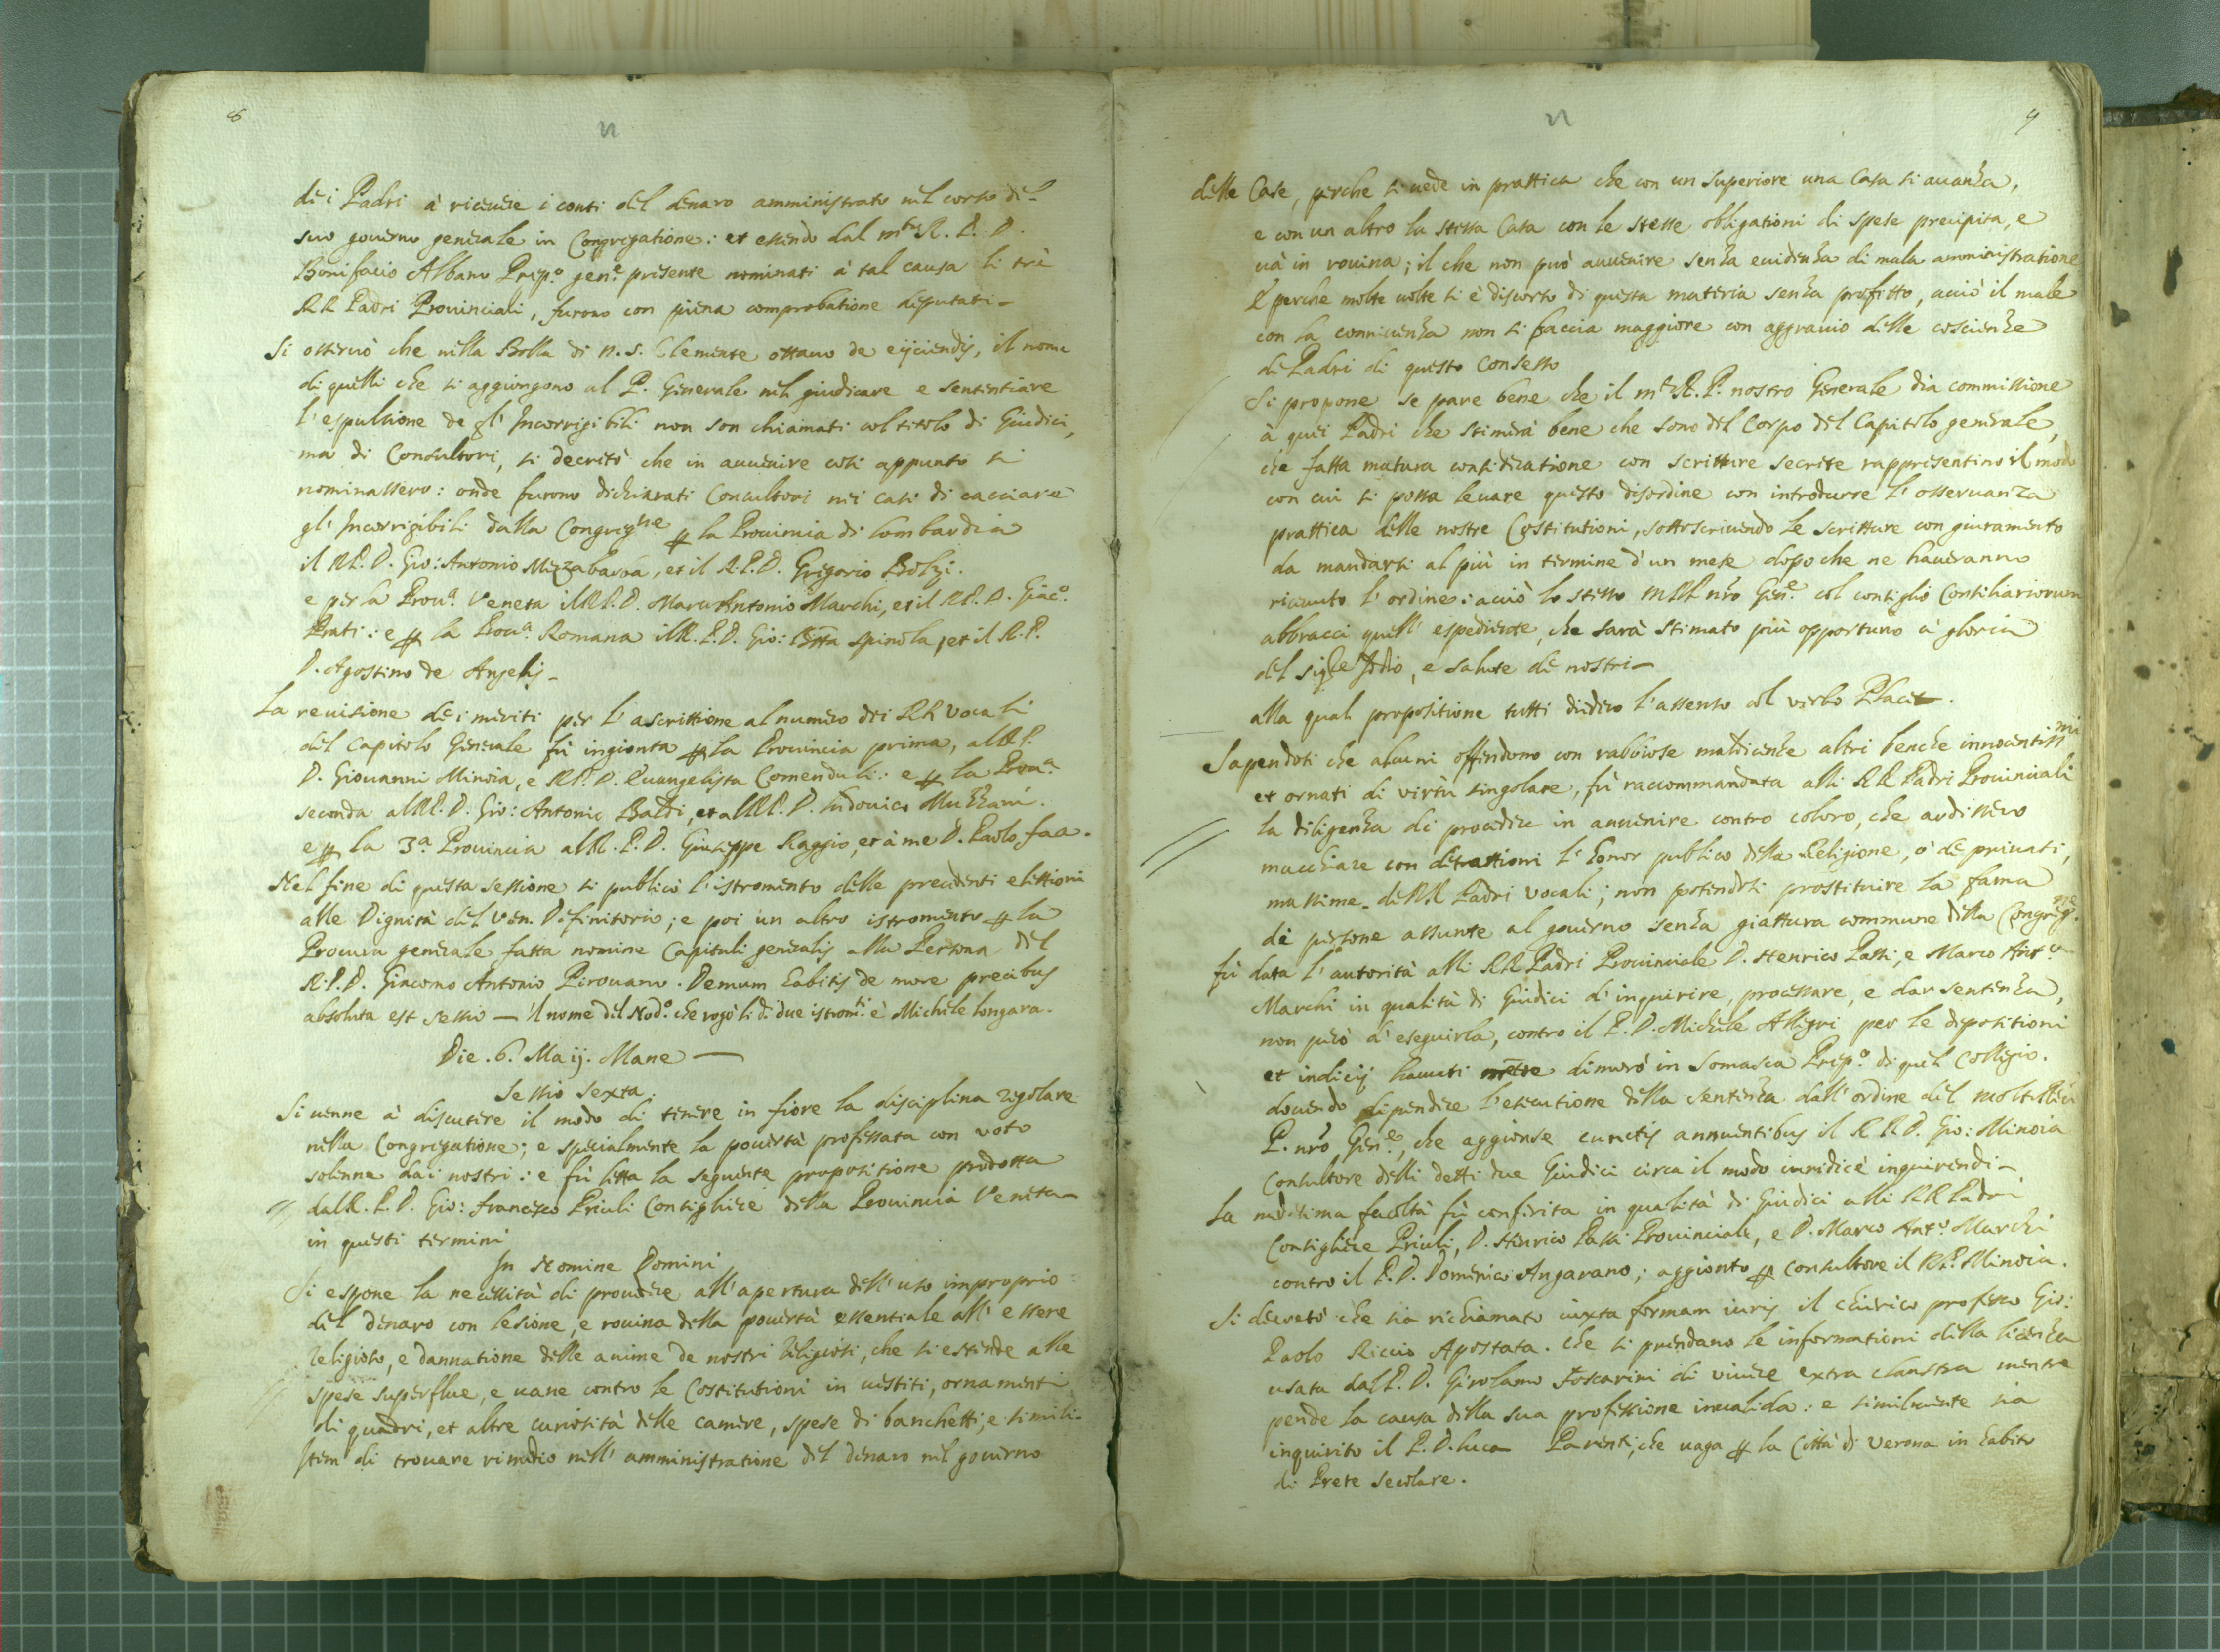 8
dei Padri à ricevere i conti del denaro amministrato nel corso del
suo governo generale in Congregatione: et essendo dal m.to R. P. D.
Bonifacio Albano Prep.o gen.e presente nominati à tal causa li trè
RR Padri Provinciali, furono con piena comprobatione deputati –
Si osservò che nella Bolla di N. S. Clemente ottavo de eijciendis, il nome
di quelli che si aggiongono al P. Generale nel giudicare e sententiare
l'espulsione de gl' Incorrigibili non son chiamati col titolo di Giudici,
ma di Consultori, si decretò che in avvenire così appunto si
nominassero: onde furono dichiarati Consultori nei casi di cacciare
gl' Incorrigibili dalla Congreg.ne per la Provincia di Lombardia
il RP. D. Gio: Antonio Mezzabarba, et il R.P.D. Grigorio Bolzi.
e per la Prov.a Veneta il RP. D. Marcantonio Marchi, et il RP. D. Giac.o
Prati: e per la Prov.a Romana il R. P. D. Gio: Batta Spinola, et il R. P.
D. Agostino de Angelis –
La revisione dei meriti per l'ascrittione al numero dei RR Vocali
del Capitolo Generale fù ingionta per la Provincia prima, al RP.
D. Giovanni Minoia, e RP. D. Evangelista Comenduli: e per la Prov.a
seconda al RP. D. Gio: Antonio Baldi, et al RP. D. Ludovico Muzzani.
e per la 3.a Provincia al R. P. D. Giuseppe Raggio, et à me D. Paolo faa.
Nel fine di questa sessione si publicò l'istromento delle precedenti elettioni
alle Dignità del Ven. Definitorio; e poi un altro istromento per la
Procura generale fatta nomine Capituli generalis alla Persona del
R. P. D. Giacomo Antonio Pirovano. Demum habitis de more precibus
absoluta est sessio — Il nome del Nod.o che rogò li d.i due istrom.ti è Michele Longara.
Die. 6. Maij. Mane —
Sessio Sexta
Si venne à discutere il modo di tenere in fiore la disciplina regolare
nella Congregatione; e specialmente la povertà professata con voto
solenne dai nostri: e fù letta la seguente propositione prodotta
dal R. P. D. Gio: Francesco Priuli Consigliere della Provincia Veneta
in questi termini
In Nomine Domini
Si espone la necessità di provedere all'apertura dell'uso improprio
del denaro con lesione, e rovina della povertà essentiale all'essere
Religioso, e dannatione delle anime de nostri Religiosi, che si estende alle
spese superflue, e vane contro le Costitutioni in vestiti, ornamenti
di quadri, et altre curiosità delle camere, spese di banchetti, e simili.
Item di trovare rimedio nell'amministratione del denaro nel governo
9
delle Case, perche si vede in prattica che con un superiore una Casa si avanza,
e con un altro la stessa Casa con le stesse obligationi di spese precipita, e
và in rovina; il che non può avvenire senza evidenza di mala amministratione
E perche molte volte si è discorso di questa materia senza profitto, acciò il male
con la connivenza non si faccia maggiore con aggravio delle coscienze
de Padri di questo Consesso
Si propone se pare bene che il m.to R. P. nostro Generale dia commissione
à quei Padri che stimerà bene che sono del Corpo del Capitolo generale,
che fatta matura consideratione con scritture secrete rappresentino il modo
con cui si possa levare questo disordine con introdurre l'osservanza
prattica delle nostre Costitutioni, sottoscrivendo le scritture con giuramento
da mandarsi al più in termine d'un mese dopo che ne haveranno
ricevuto l'ordine: acciò lo stesso MRP nro Gen.e col consiglio Consiliariorum
abbracci quell'espediente, che sarà stimato più opportuno à gloria
del Sig.e Iddio, e salute de nostri –
alla qual propositione tutti diedero l'assenso col verbo Placet.
Sapendosi che alcuni offendono con rabbiose maldicenze altri benche innocentiss.mi
et ornati di virtù singolare, fù raccommandata alli RR Padri Provinciali
la diligenza di procedere in avvenire contro coloro, che ardissero
macchiare con detrattioni l'honor publico della Religione, ò de privati,
massime de RR Padri vocali; non potendosi prostituire la fama
de persone assunte al governo senza giattura commune della Congreg.ne
fù data l'autorità alli RR Padri Provinciale D. Henrico Passi, e Marco Ant.o
Marchi in qualità di Giudici d'inquirire, processare, e dar sentenza,
non però d'eseguirla, contro il P. D. Michele Allegri per le depositioni
et indicij havuti mentre dimorò in Somasca Prep.o di quel Collegio.
dovendo dipendere l'esecutione della sentenza dall'ordine del molto Rev
P. nro Gen.e, che aggionse cunctis annuentibus il R P. D. Gio: Minoia
Consultore delli detti due Giudici circa il modo iuridicè inquirendi –
La medesima facoltà fù conferita in qualità di Giudici alli RR Padri
Consigliere Priuli, D. Henrico Passi Provinciale, e D. Marco Ant.o Marchi
contro il P. D. Domenico Angarano; aggionto per Consultore il RP. Minoia.
Si decretò che sia richiamato iuxta formam iuris il chierico professo Gio:
Paolo Riccio Apostata. Che si prendano le informationi della licenza
usata dal P. D. Girolamo Foscarini di vivere extra claustra mentre
pende la causa della sua professione invalida: e similmente sia
inquirito il P. D. Luca Parenti, che vaga per la Città di Verona in habito
di Prete secolare.